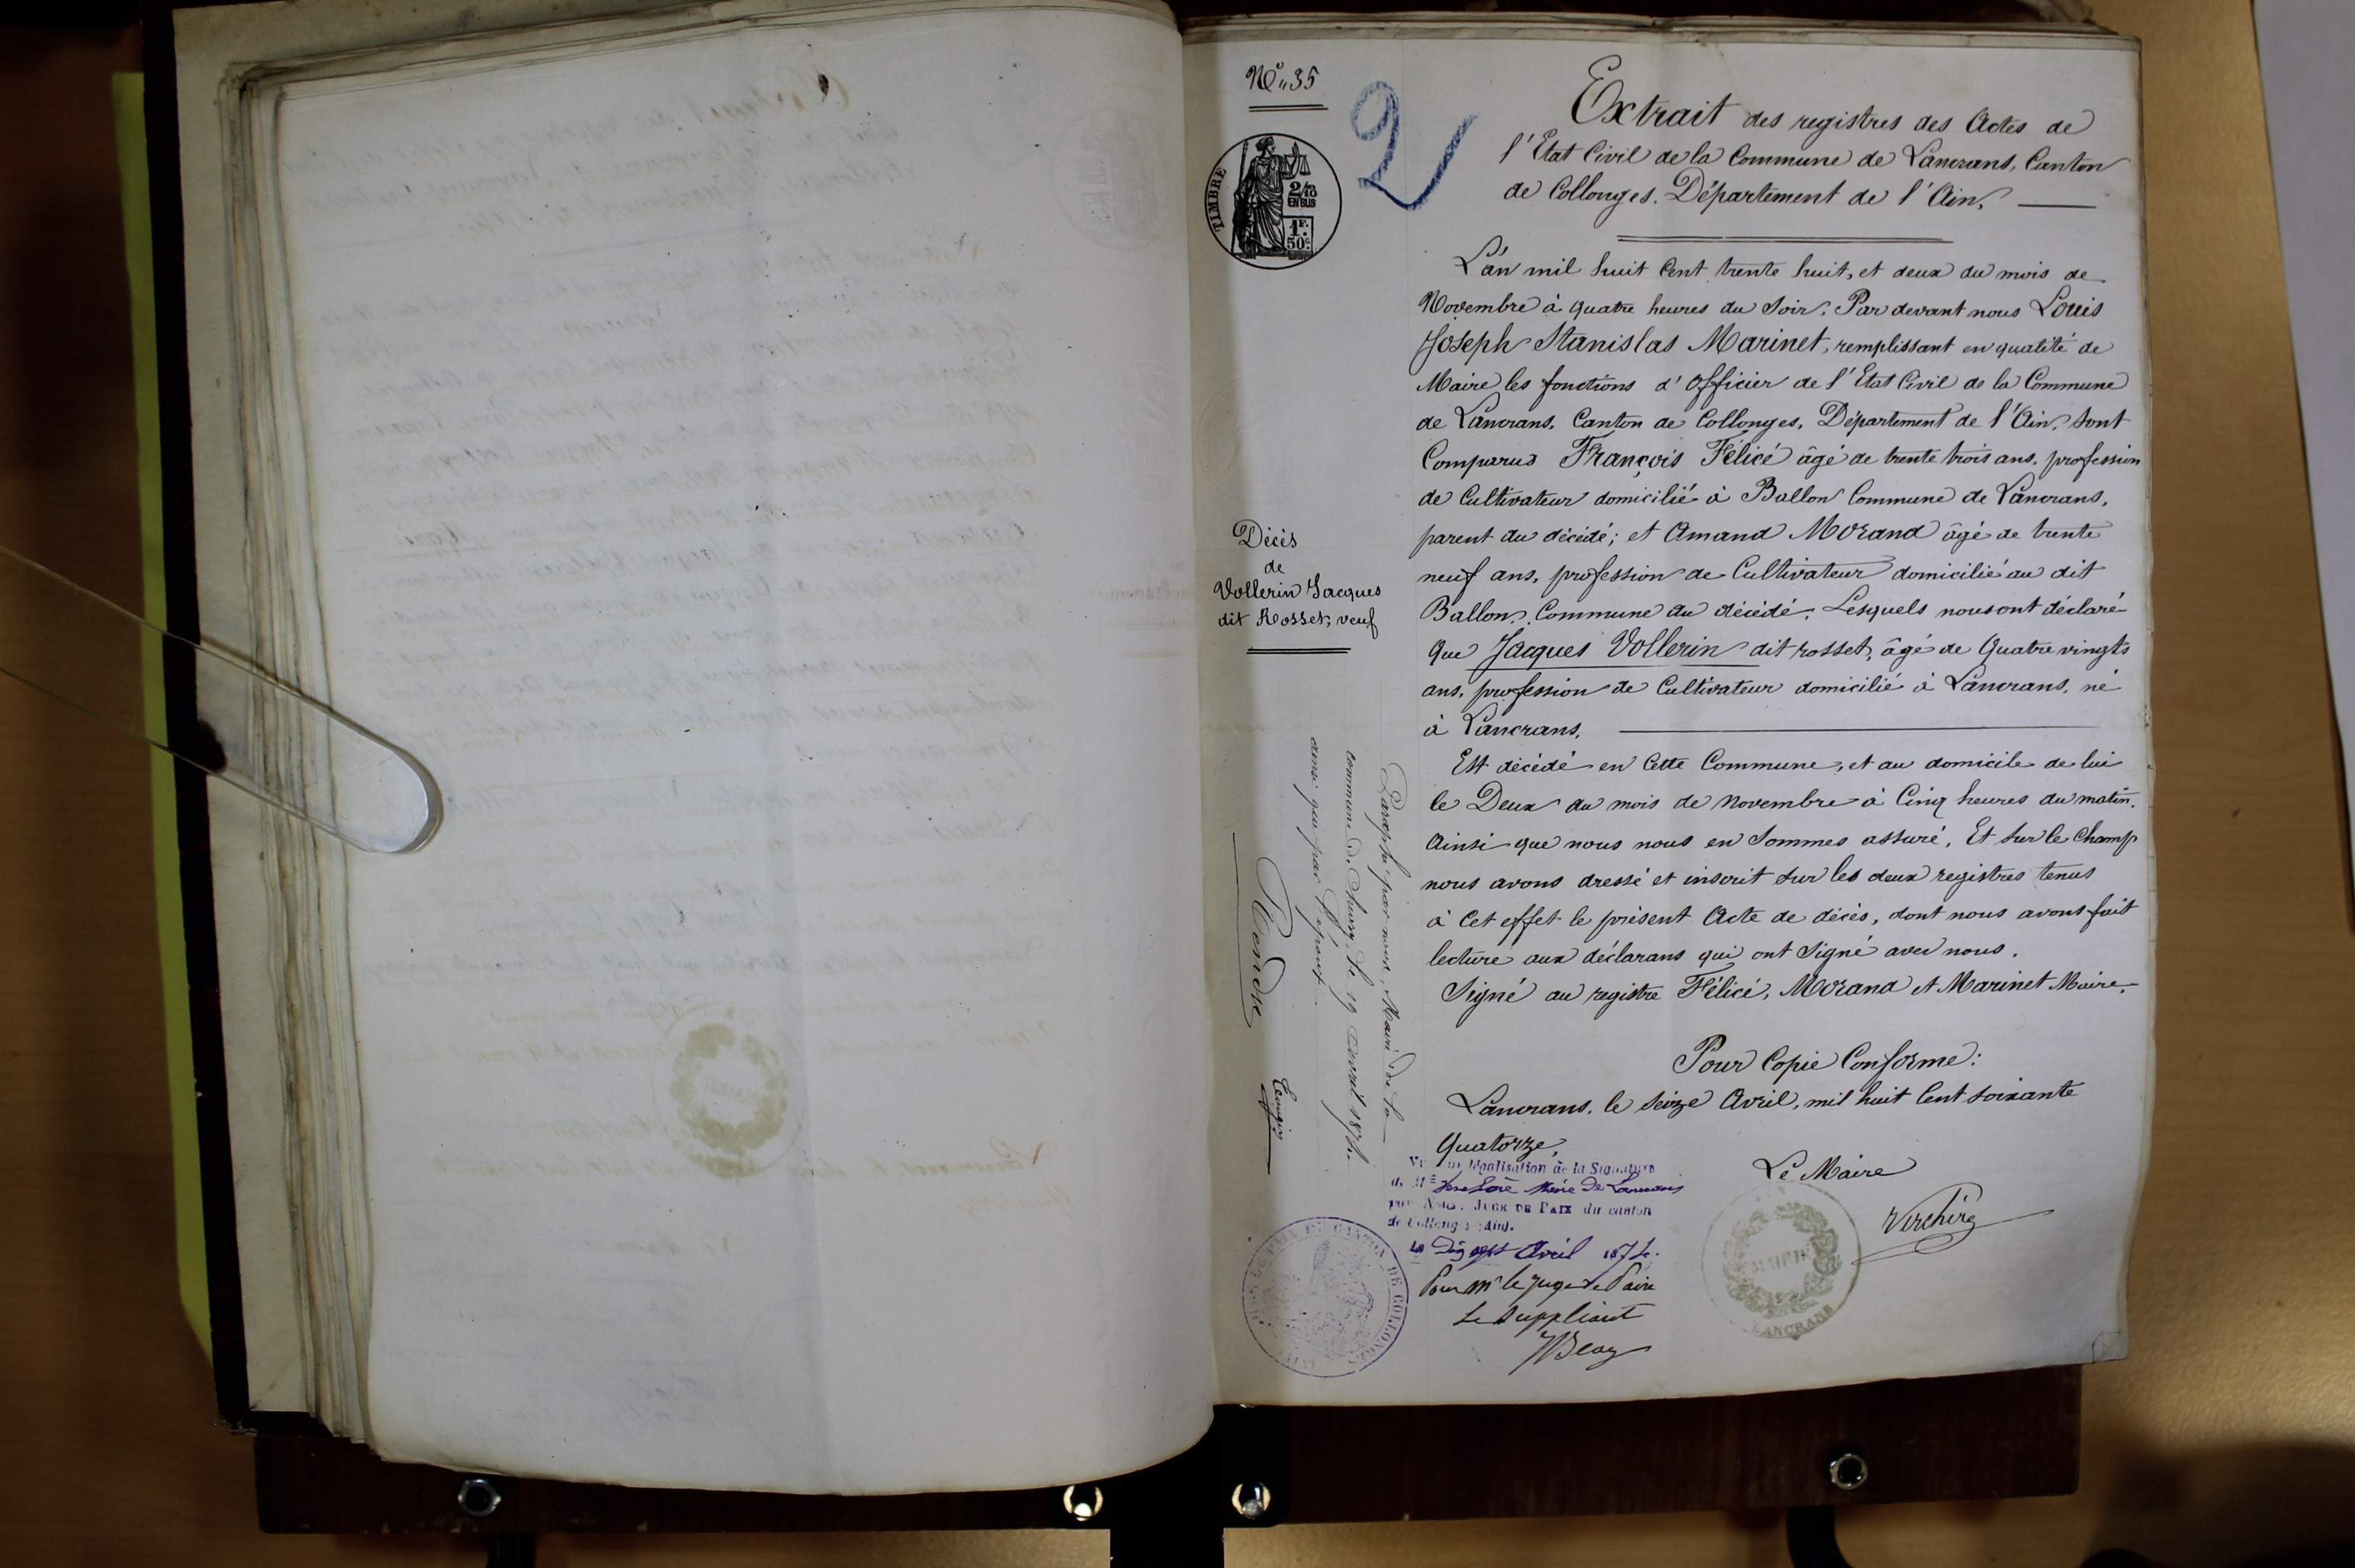 N° 35
2
TIMBRE
2/10
EN SUS
1F.
50c.
Extrait des registres des Actes de
l'État Civil de la Commune de Lancrans, Canton
de Collonges. Département de l'Ain.
L'an mil huit Cent trente huit, et deux du mois de
Novembre à quatre heures du Soir. Par devant nous Louis
Joseph Stanislas Marinet, remplissant en qualité de
Maire les fonctions d'Officier de l'État Civil de la Commune
de Lancrans, Canton de Collonges, Département de l'Ain, Sont
Comparus François Félicé âgé de trente trois ans, profession
de Cultivateur domicilié à Ballon Commune de Lancrans,
parent du décédé; et Amand Morand âgé de trente
neuf ans, profession de Cultivateur domicilié au dit
Ballon, Commune du décédé. Lesquels nous ont déclaré
que Jacques Vollerin dit rosset, âgé de Quatre vingts
ans, profession de Cultivateur domicilié à Lancrans, né
à Lancrans.
Décès
de
Vollerin Jacques
dit Rosset, veuf
Est décédé en Cette Commune, et au domicile de lui
le Deux du mois de novembre à Cinq heures du matin.
Ainsi que nous nous en Sommes assuré, Et Sur le Champ
nous avons dressé et inscrit Sur les deux registres tenus
à Cet effet le présent Acte de décès, dont nous avons fait
lecture aux déclarans qui ont Signé avec nous.
Signé au registre Félicé, Morand et Marinet Maire.
Paraphé par nous, Maire de la
commune de Thusy, le 19 avril 1874.
ainsi que par l'époux.
Pour Copie Conforme:
Lancrans, le Seize Avril, mil huit Cent Soixante
Quatorze,
Le Maire
légalisation de la Signature
Maire de Lancrans
par Nous, JUGE DE PAIX du canton
de Collonges (Ain).
Avril 1874.
Pour Mr le Juge de Paix
Le Suppléant
CANTON DE COLLONGES
MAIRIE
LANCRANS